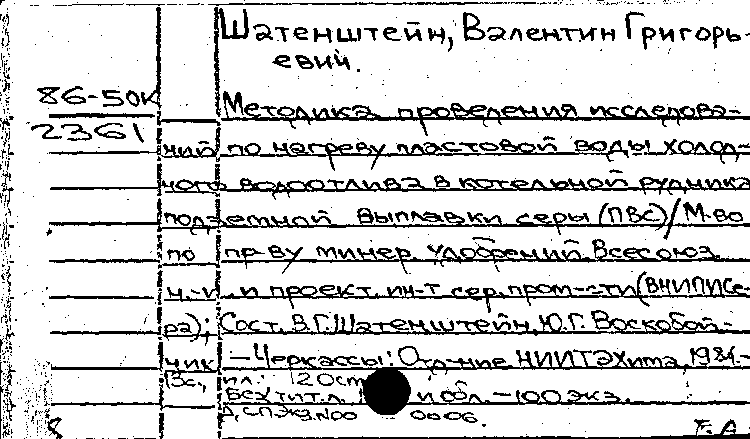 Шатенштейн, Валентин Григорь-
евич.
86-50к
2361
Методика проведения исследова-
ний по нагреву пластовой воды холод-
ного водоотлива в котельной рудника
подземной выплавки серы (ПВС)/М-во
по пр-ву минер. удобрений. Всесоюз.
н.-и. и проект. ин-т сер. пром-сти (ВНИПИСе-
ра); Сост. В.Г. Шатенштейн, Ю.Г. Воскобой-
ник — Черкассы: Отд-ние НИИТЭХима, 1984.-
13с., ил.; 20см
Без тит.л. и обл. — 100 экз.
0006.